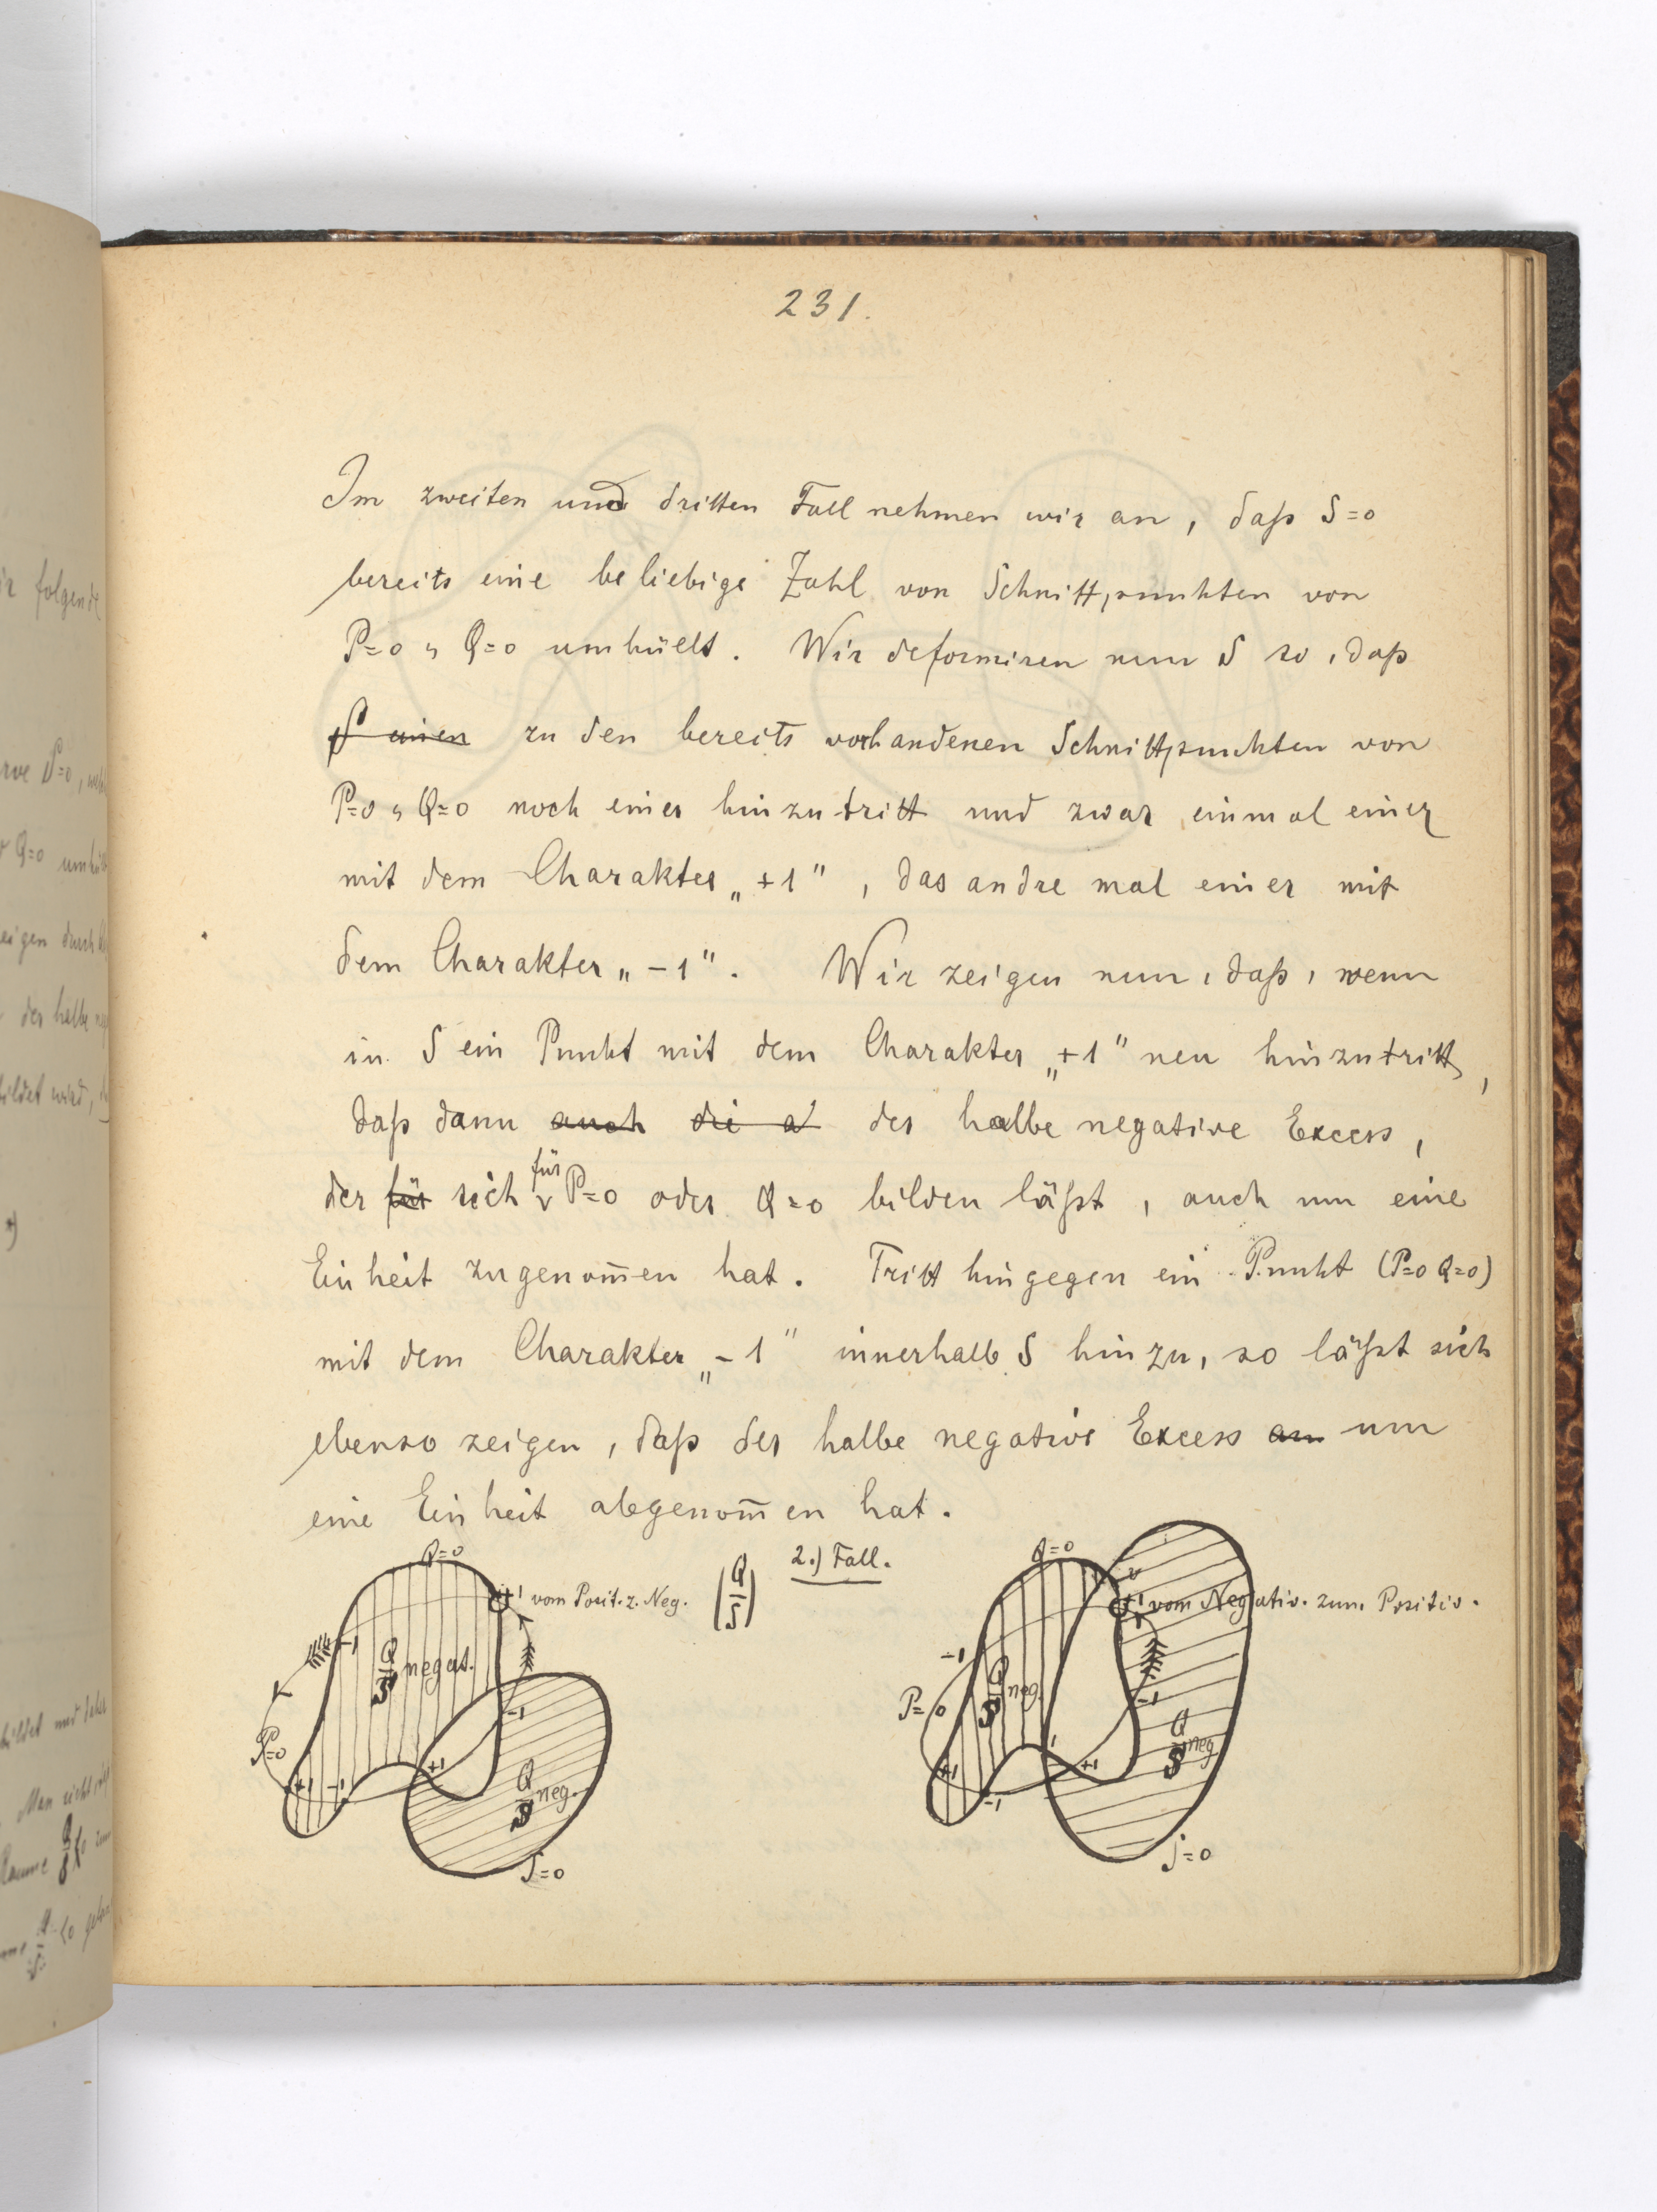 231.
Im zweiten und dritten Fall nehmen wir an, daß S=0
bereits eine beliebige Zahl von Schnittpunkten von
P=0, Q=0 umhüllt. Wir deformiren nun S so, daß
S einen zu den bereits vorhandenen Schnittpunkten von
P=0, Q=0 noch einer hinzutritt und zwar einmal einer
mit dem Charakter „+1", das andre mal einer mit
dem Charakter „-1". Wir zeigen nun, daß, wenn
in S ein Punkt mit dem Charakter „+1" neu hinzutritt,
daß dann auch die a der halbe negative Excess,
der für sich für P=0 oder Q=0 bilden läßt, auch um eine
Einheit zugenom̄en hat. Tritt hingegen ein Punkt (P=0 Q=0)
mit dem Charakter „-1" innerhalb S hinzu, so läßt sich
ebenso zeigen, daß der halbe negative Excess an um
eine Einheit abgenom̄en hat.
2.) Fall.
Q=0
+1 vom Posit. z. Neg. (Q/S)
-1
Q/S negat.
-1
P=0
+1 -1 +1
Q/S neg.
S=0
Q=0
+1 vom Negativ. zum Positiv.
-1
Q/S neg.
P=0
-1
Q/S neg.
+1 -1 +1
S=0
ir folgende
rve S=0,
Q=0
eigen durch
der halbe
bildet wird,
bildet und
Man sieht
Raume Q/S<0
Q/S<0